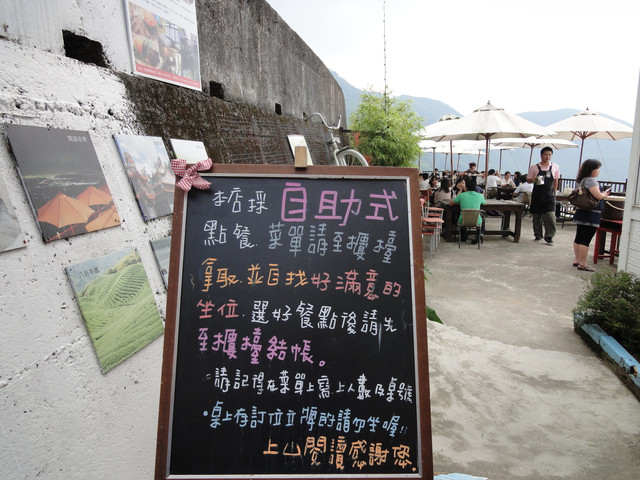 本店採 自助式
點餐.菜單請至櫃檯
拿取.並自找好滿意的
坐位.選好餐點後請先
至櫃檯結帳。
·請記得在菜單上寫上人數及桌號
·桌上有訂位立牌的請勿坐喔!!
上山閱讀感謝您.